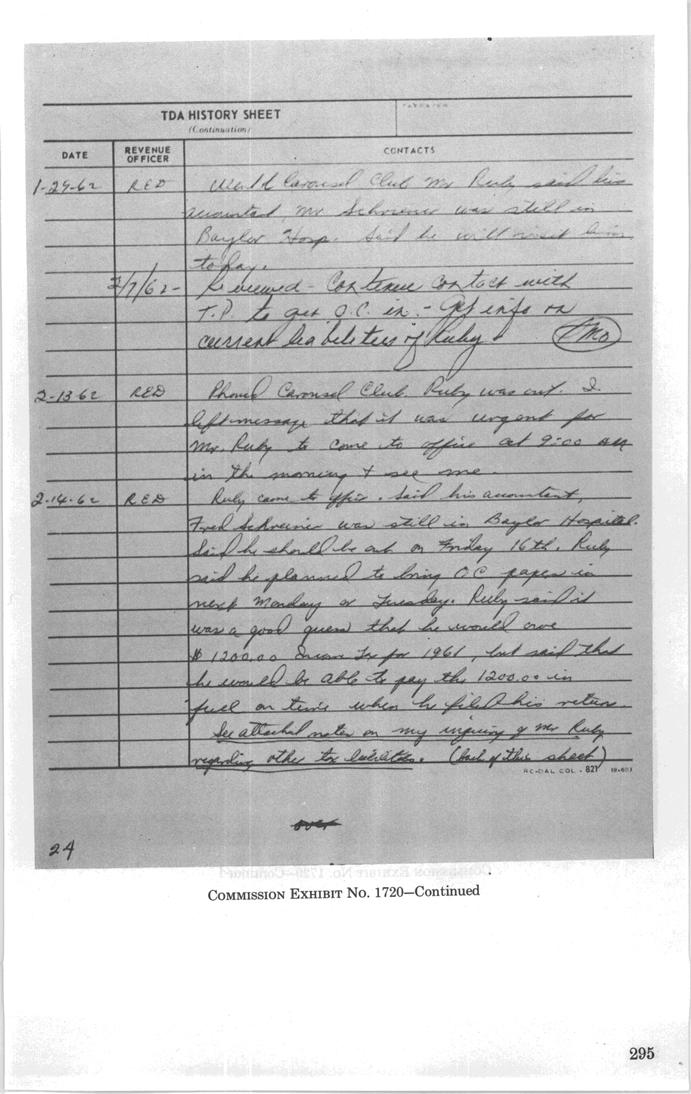 TDA HISTORY SHEET
(Continuation)
TAXPAYER
DATE REVENUE OFFICER CONTACTS
1-29-62 RED Carousel Club Mr Ruby said his
accountant, Mr. Schreiner was still in
Baylor Hosp. Said he will visit him
today.
2/7/62- Reviewed - Continue contact with
T.P. to get O.C. in. - Get info on
current liabilities of Ruby.
2-13-62 RED Phoned Carousel Club. Ruby was out. I
left message that it was urgent for
Mr. Ruby to come to office at 9:00 AM
in the morning & see me.
2-14-62 RED Ruby came to office. Said his accountant,
Fred Schreiner was still in Baylor Hospital.
Said he should be out on Friday 16th. Ruby
said he planned to bring OC papers in
next Monday or Tuesday. Ruby said it
was a good guess that he would owe
$1200.00 Income Tx for 1961, but said that
he would be able to pay the 1200.00 in
full on time when he filed his return.
See attached notes on my inquiry of Mr Ruby
regarding other tax liabilities. (back of this sheet)
RC-DAL COL.-821
over
24
COMMISSION EXHIBIT No. 1720—Continued
295